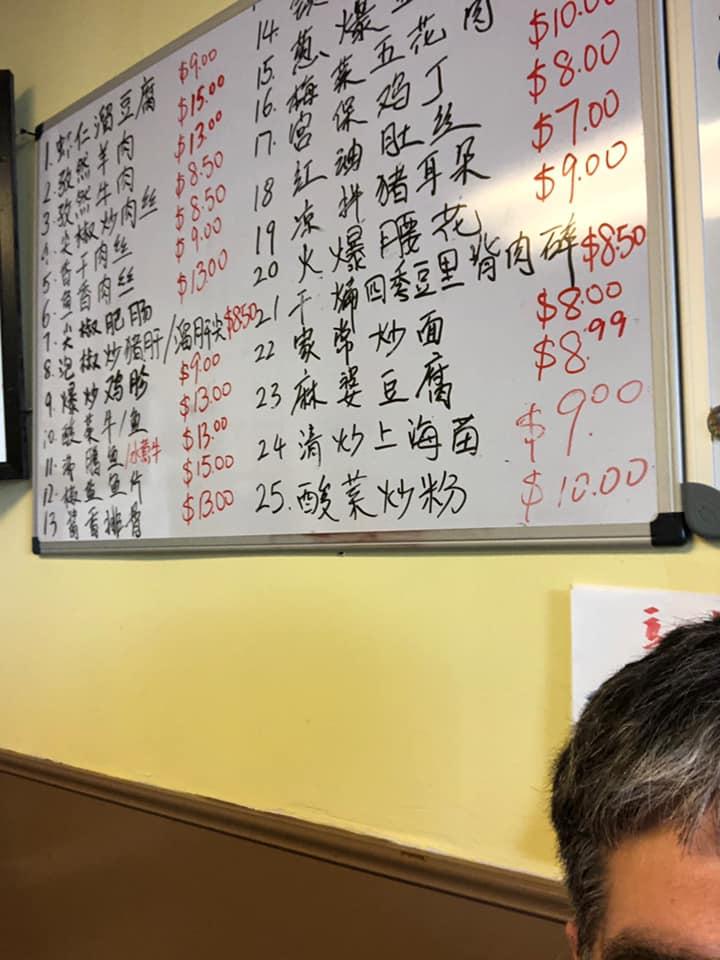 1. 虾仁溜豆腐 $9.00
2. 孜然羊肉 $15.00
3. 孜然牛肉 $13.00
4. 尖椒炒肉丝 $8.50
5. 香干肉丝 $8.50
6. 鱼香肉丝 $9.00
7. 尖椒肥肠 $13.00
8. 泡椒炒猪肝/溜肝尖 $8.50
9. 爆炒鸡胗 $9.00
10. 酸菜牛/鱼 $13.00
11. 鱼/水煮牛 $13.00
12. 椒盐鱼片 $15.00
13. 酱香排骨 $13.00
14.
15. 葱爆
16. 梅菜五花肉 $10.00
17. 宫保鸡丁 $8.00
18 红油肚丝 $7.00
19 凉拌猪耳朵 $9.00
20 火爆腰花
21 干煸四季豆里背肉碎 $8.50
22 家常炒面 $8.00
23 麻婆豆腐 $8.99
24 清炒上海苗 $9.00
25. 酸菜炒粉 $10.00